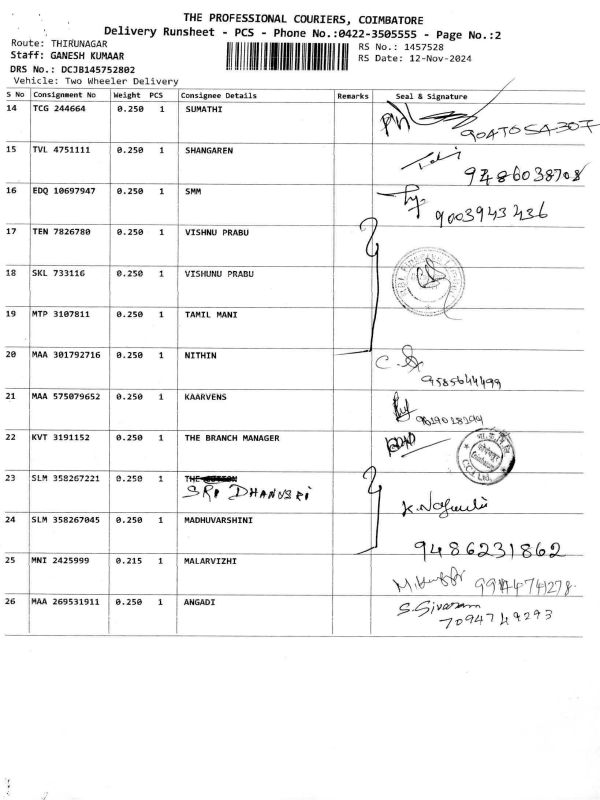 THE PROFESSIONAL COURIERS, COIMBATORE
Delivery Runsheet - PCS - Phone No.:0422-3505555 - Page No.:2
Route: THIRUNAGAR RS No.: 1457528
Staff: GANESH KUMAAR RS Date: 12-Nov-2024
DRS No.: DCJB145752802
Vehicle: Two Wheeler Delivery
S No Consignment No Weight PCS Consignee Details Remarks Seal & Signature
14 TCG 244664 0.250 1 SUMATHI
15 TVL 4751111 0.250 1 SHANGAREN
9486038708
16 EDQ 10697947 0.250 1 SMM
9003943436
17 TEN 7826780 0.250 1 VISHNU PRABU
18 SKL 733116 0.250 1 VISHUNU PRABU
19 MTP 3107811 0.250 1 TAMIL MANI
20 MAA 301792716 0.250 1 NITHIN
9585644499
21 MAA 575079652 0.250 1 KAARVENS
22 KVT 3191152 0.250 1 THE BRANCH MANAGER
23 SLM 358267221 0.250 1 THE
SRI DHANUSRI
24 SLM 358267045 0.250 1 MADHUVARSHINI
9486231862
25 MNI 2425999 0.215 1 MALARVIZHI
26 MAA 269531911 0.250 1 ANGADI
S. Sivaram
7094749293